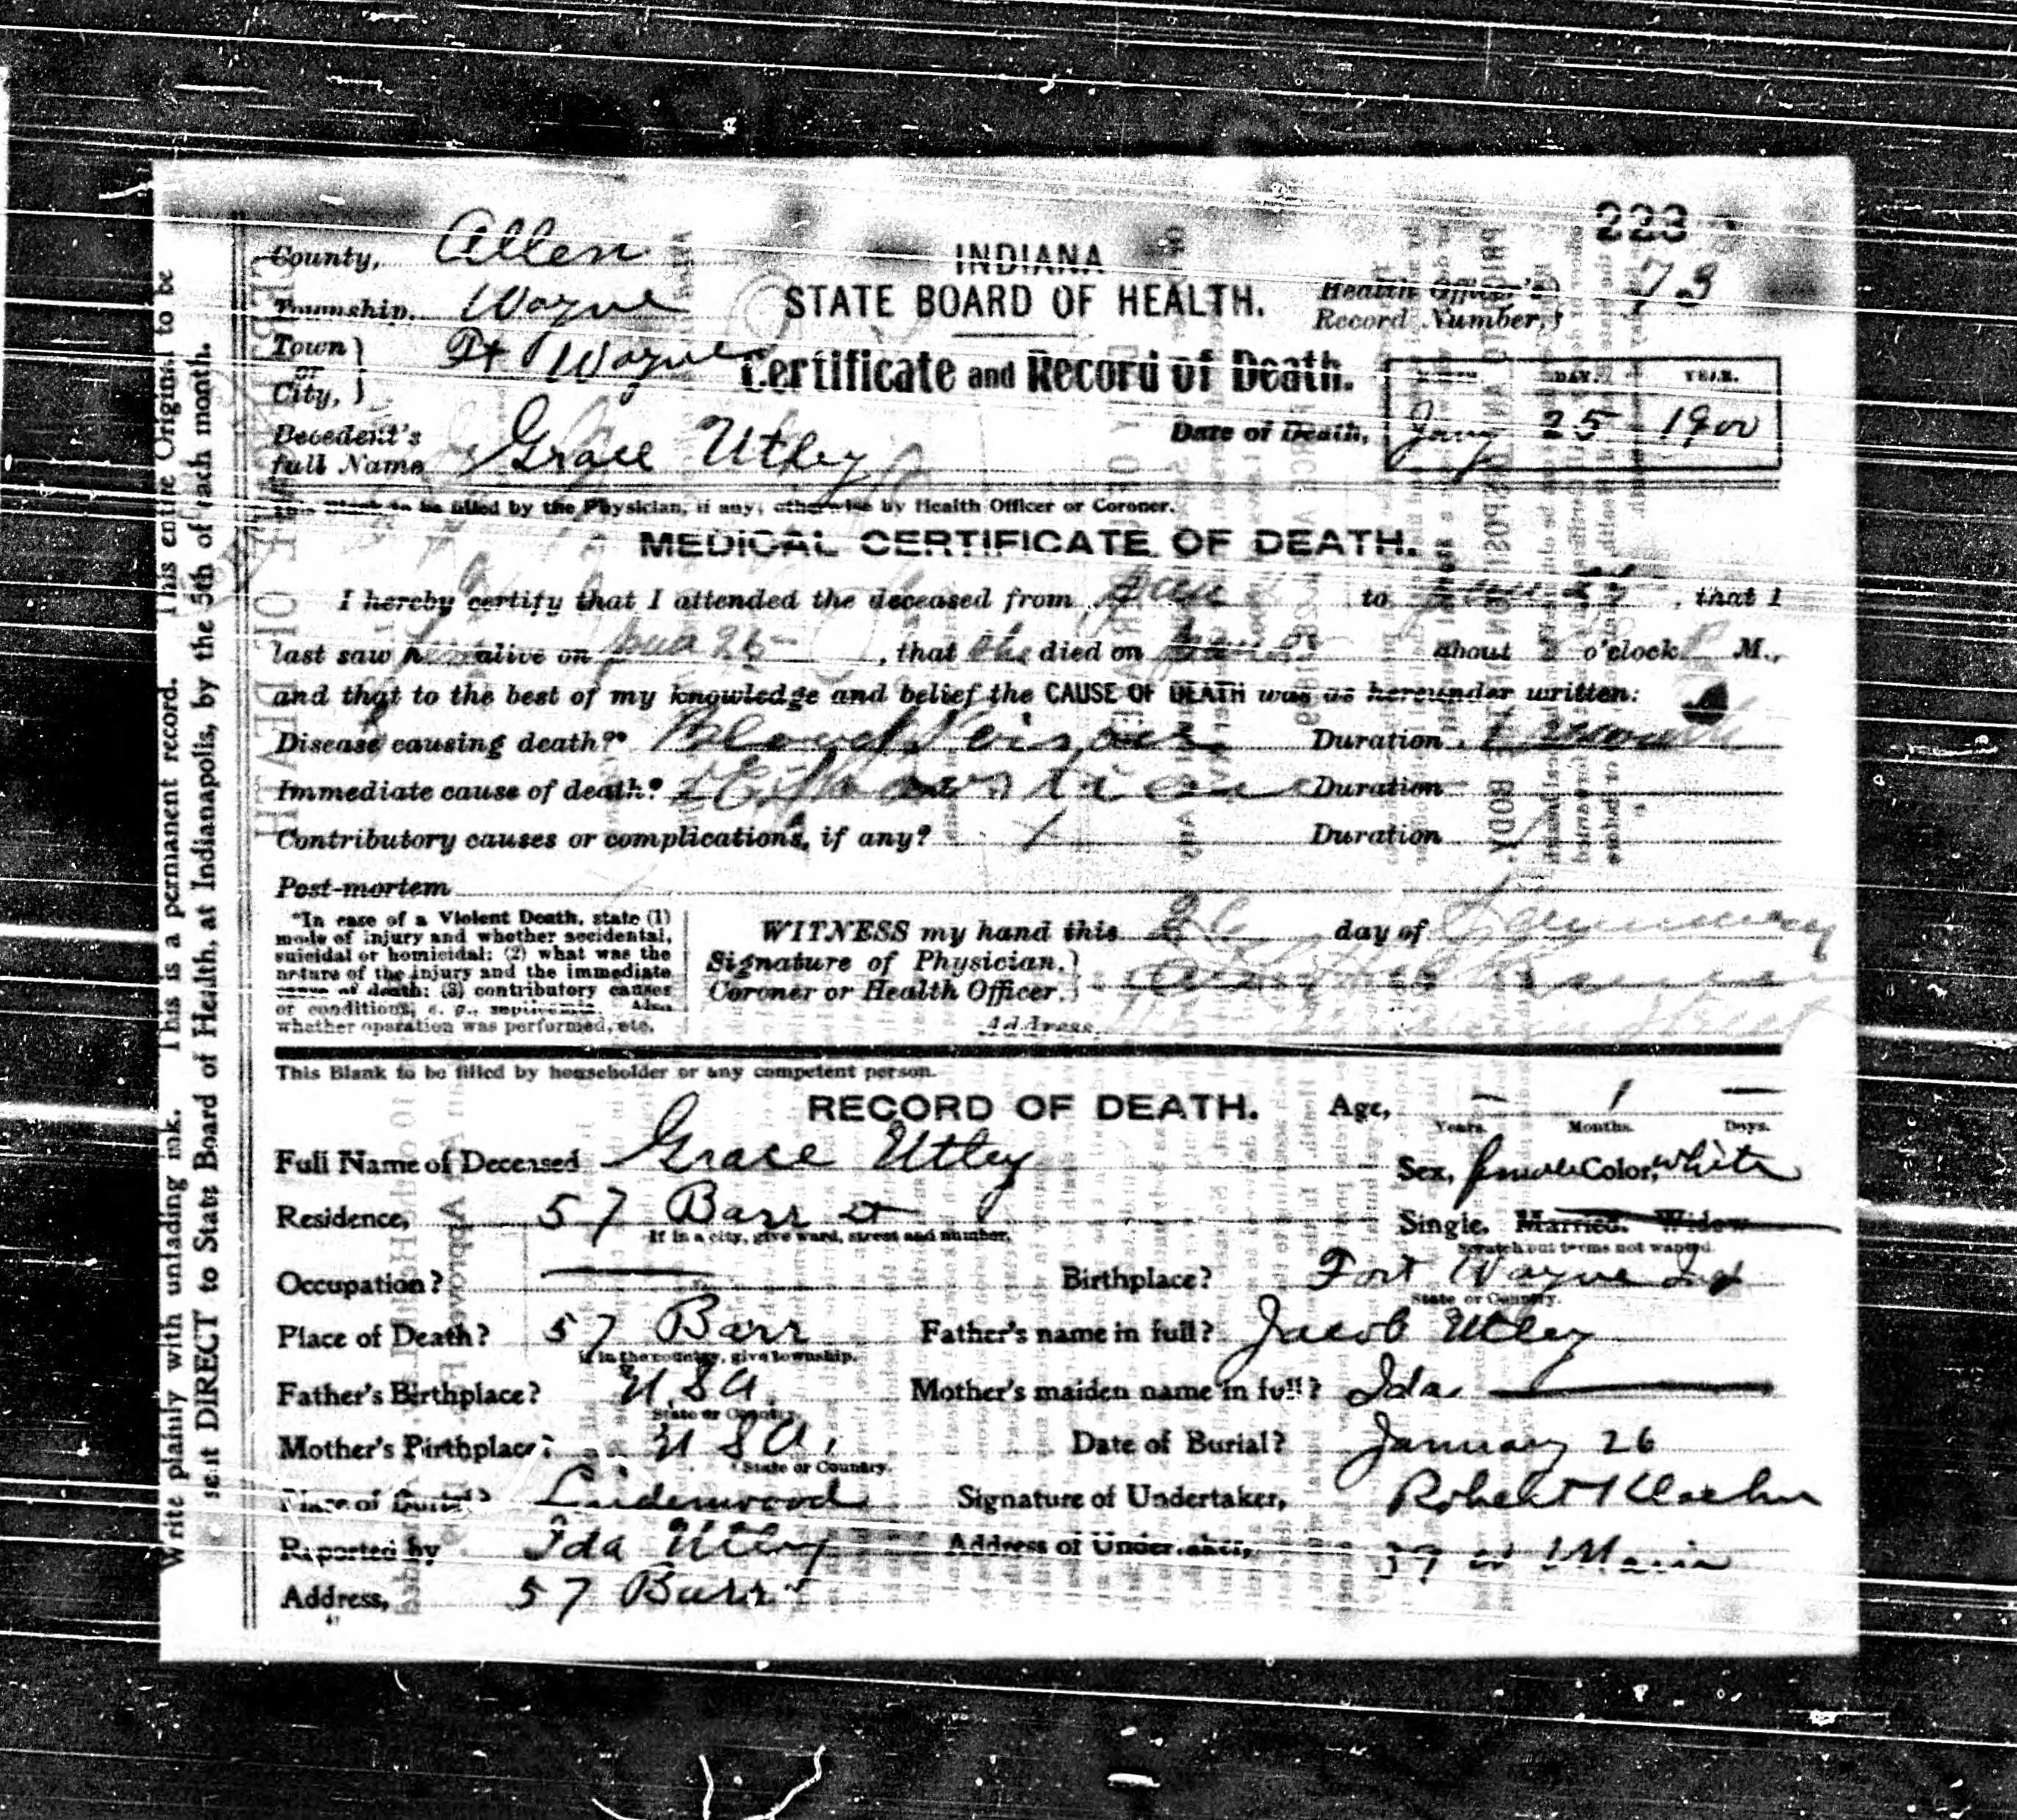 223
County, Allen
INDIANA
Township, Wayne
STATE BOARD OF HEALTH.
Health Officer's Record Number, 73
Town or City, Ft Wayne
Certificate and Record of Death.
MONTH. DAY. YEAR.
Decedent's full Name Grace Utley
Date of Death, Jany 25 1900
This Blank to be filled by the Physician, if any, otherwise by Health Officer or Coroner.
MEDICAL CERTIFICATE OF DEATH.
I hereby certify that I attended the deceased from Jan to , that I
last saw her alive on , that she died on about o'clock P M.,
and that to the best of my knowledge and belief the CAUSE OF DEATH was as hereunder written:
Disease causing death?* Blood Poison Duration 1 month
Immediate cause of death? Exhaustion Duration
Contributory causes or complications, if any? Duration
Post-mortem
*In case of a Violent Death, state (1)
mode of injury and whether accidental,
suicidal or homicidal; (2) what was the
nature of the injury and the immediate
cause of death; (3) contributory causes
or conditions, e. g., septicemia. Also
whether operation was performed, etc.
WITNESS my hand this 26 day of January
Signature of Physician, Coroner or Health Officer,
Address, Street
This Blank to be filled by householder or any competent person.
RECORD OF DEATH. Age, – 1 –
Years. Months. Days.
Full Name of Deceased Grace Utley Sex, female Color, white
Residence, 57 Barr st Single. Married. Widow
If in a city, give ward, street and number. Scratch out terms not wanted.
Occupation? Birthplace? Fort Wayne Ind
State or Country.
Place of Death? 57 Barr Father's name in full? Jacob Utley
If in the country, give township.
Father's Birthplace? USA Mother's maiden name in full? Ida
State or Country.
Mother's Birthplace? USA. Date of Burial? January 26
State or Country.
Place of Burial? Lindenwood Signature of Undertaker, Robert Klaehn
Reported by Ida Utley Address of Undertaker, 57 W Main
Address, 57 Barr st
Write plainly with unfading ink. This is a permanent record. This entire Original to be
sent DIRECT to State Board of Health, at Indianapolis, by the 5th of each month.